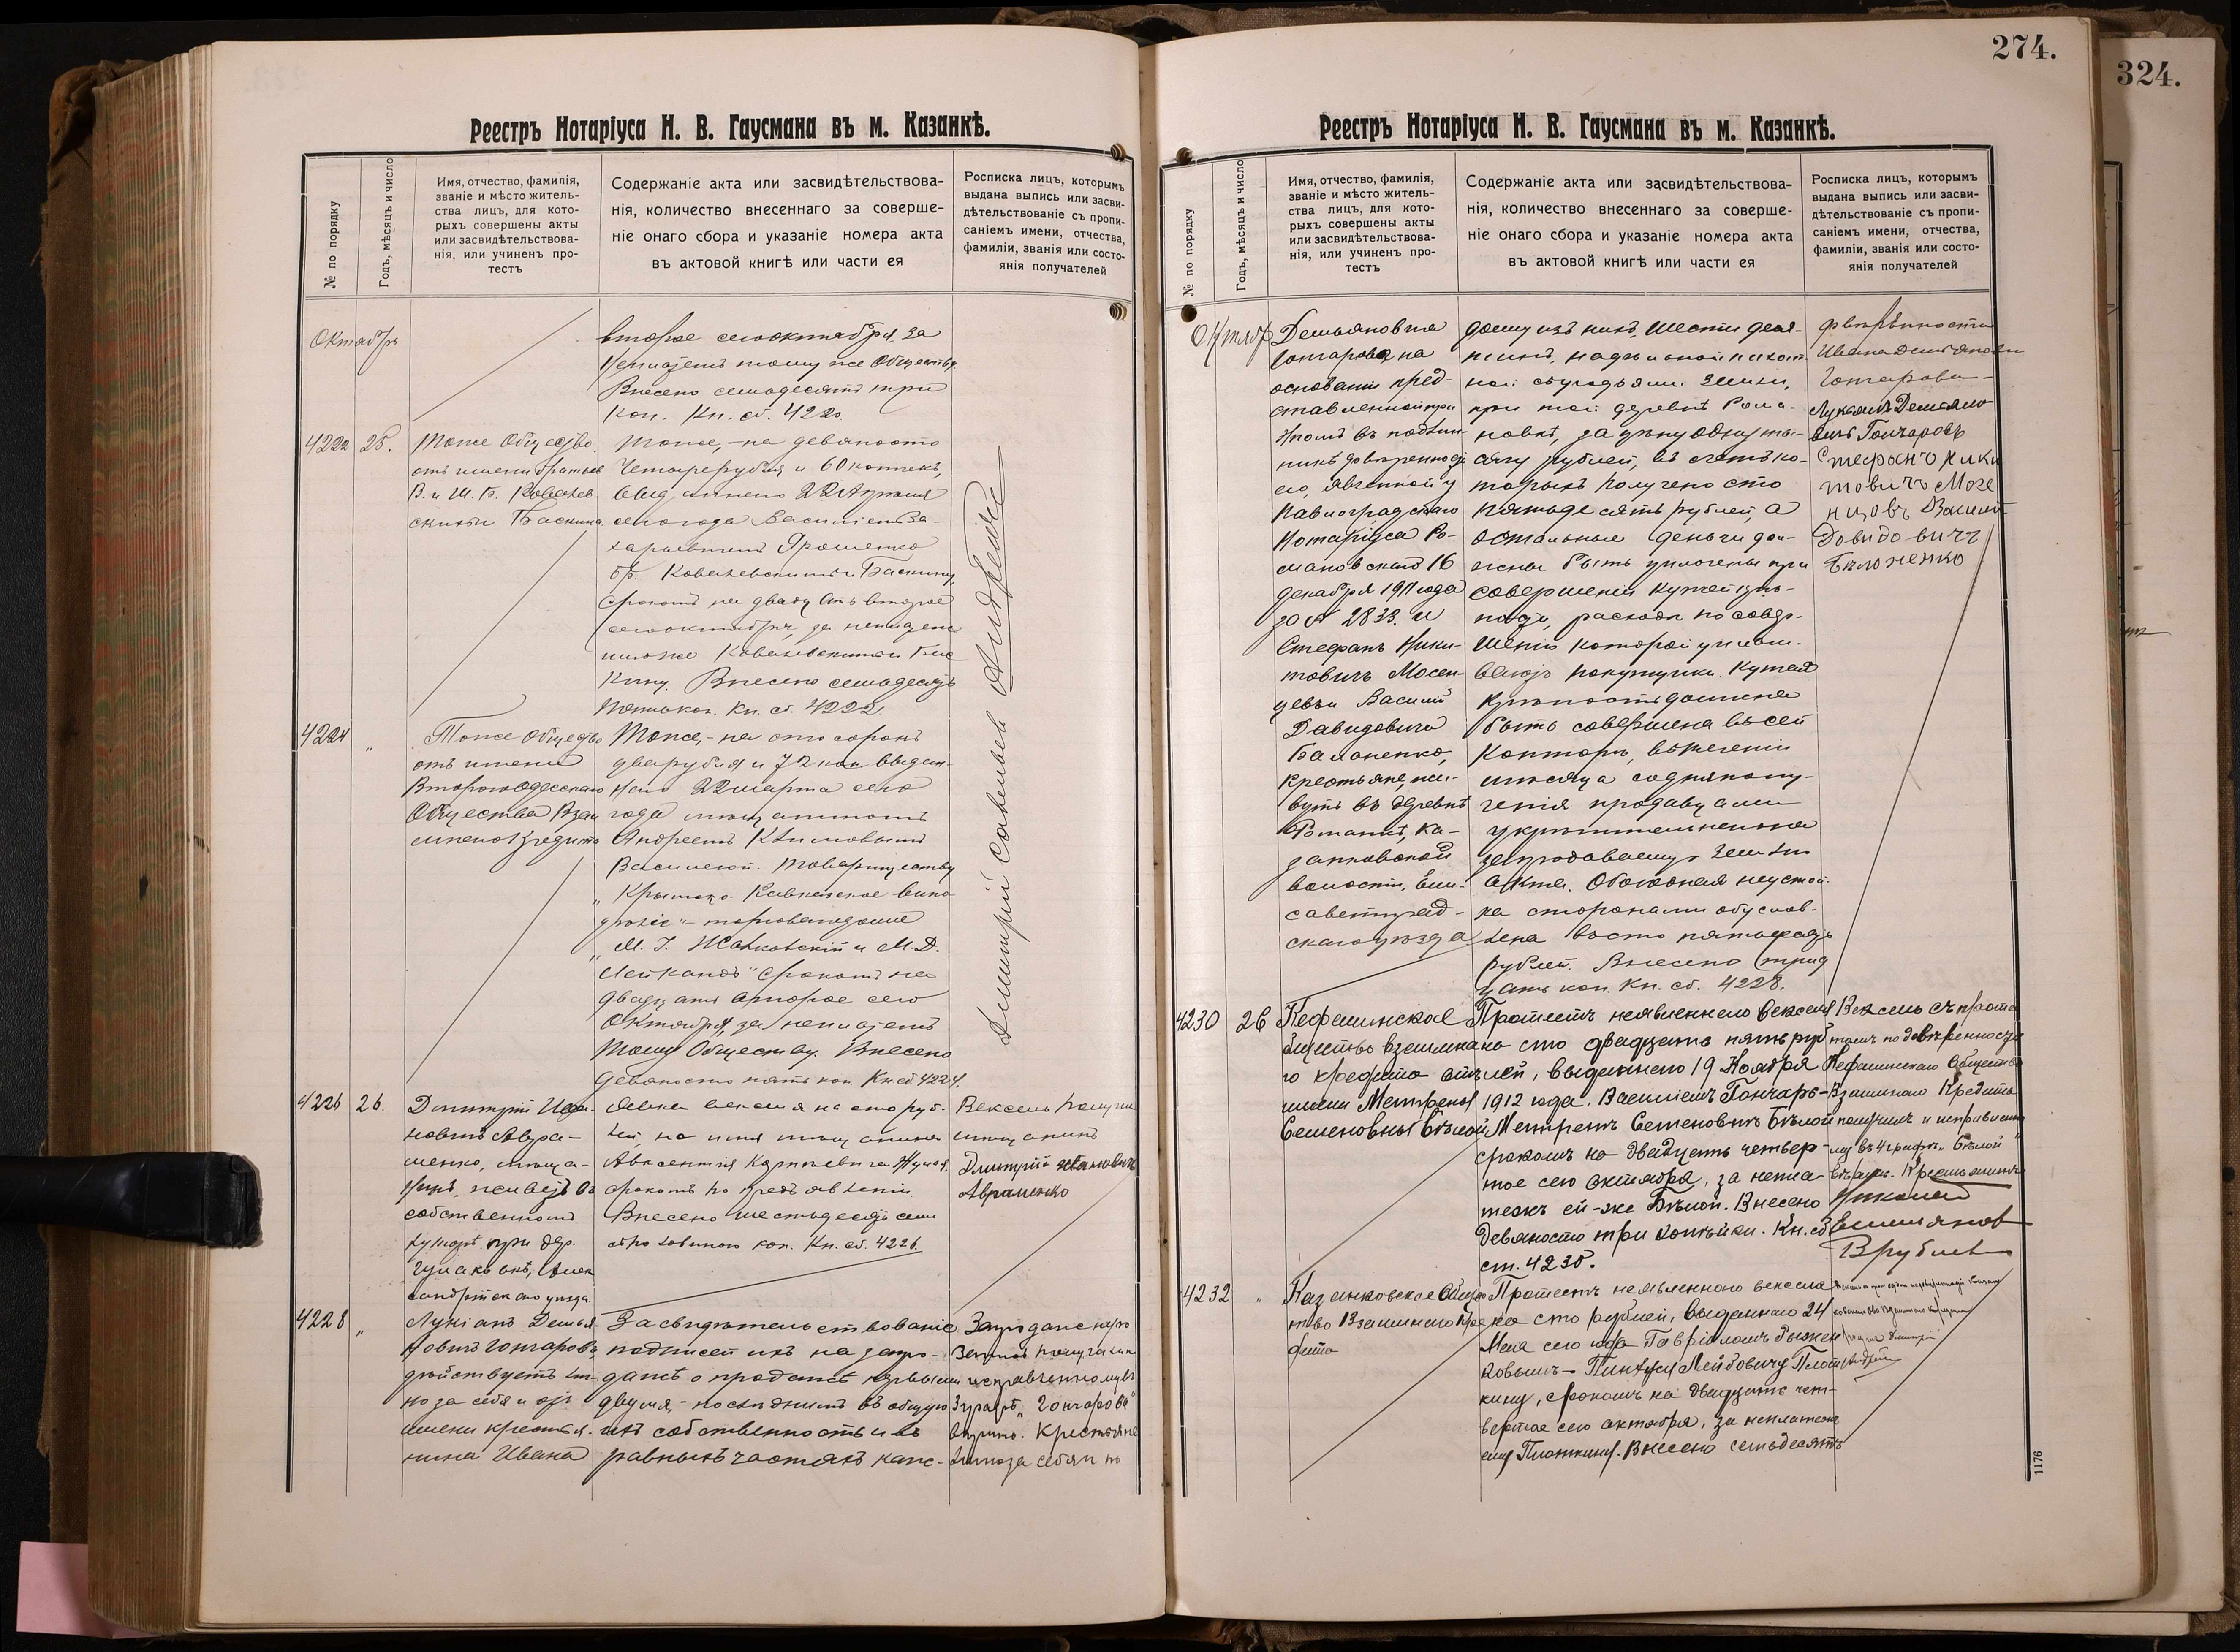 274.
324.
Реестръ Нотаріуса Н. В. Гаусмана въ м. Казанкѣ.
№ по порядку
Годъ, мѣсяцъ и число
Имя, отчество, фамилія,
званіе и мѣсто житель-
ства лицъ, для кото-
рыхъ совершены акты
или засвидѣтельствова-
нія, или учиненъ про-
тестъ
Содержаніе акта или засвидѣтельствова-
нія, количество внесеннаго за соверше-
ніе онаго сбора и указаніе номера акта
въ актовой книгѣ или части ея
Росписка лицъ, которымъ
выдана выпись или засви-
дѣтельствованіе съ пропи-
саніемъ имени, отчества,
фамиліи, званія или состо-
янія получателей
Октябрь
второе сего октября, за
неплатежъ тому же Обществу.
Внесено семьдесятъ три
коп. Кн. сб. 4220
4222
25.
Тоже Общество
отъ имени братьевъ
В. и Ш. Б. Ковалев
скихъ и Баскина
Тоже, - на девяносто
Четыре рубля и 60 копѣекъ,
выданнаго 22 Апрѣля
сего года Василіемъ За-
харьевымъ Ярошенко
бр. Ковалевскимъ и Баскину,
срокомъ на двадцать второе
сего октября, за неплатежъ
имъ же Ковалевскимъ и Бас
кину. Внесено семьдесятъ
коп. Кн. сб. 4222
Дмитрій Савельев Андрейко
4224
"
Тоже Общество
отъ имени
Второго Одесскаго
Общества Взаи
мнаго Кредита
Тоже, - на сто сорокъ
два рубля и 72 коп. выдан-
наго 22 марта сего
года мѣщаниномъ
Андреемъ Климовымъ
Василегой. Товариществу
„Крымско-Кавказское вино
дѣліе" - торговый домъ
„М. І. Жолковскій и М. Д.
Лейкандъ" срокомъ на
двадцать второе сего
Октября, за неплатежъ
тому Обществу. Внесено
девяносто пять коп. Кн. сб. 4224.
4226
26.
Дмитрій Ива-
новичъ Авра-
менко, мѣща-
нинъ, живетъ въ
собственномъ
хуторѣ при дер.
Гумаковкѣ, Алек
сандрійскаго уѣзда.
Явка векселя на сто руб-
лей, на имя мѣщанина
Авксентія
срокомъ по предъявленіи.
Внесено шестьдесятъ семь
съ половиною коп. Кн. сб. 4226.
Вексель получилъ
мѣщанинъ
Дмитрій Ивановичъ
Авраменко
4228
"
Лукіанъ Демья-
новичъ Гончаровъ,
дѣйствуетъ лич-
но за себя и отъ
имени крестья-
нина Ивана
Засвидѣтельствованіе
подписей ихъ на запро-
дажѣ о продажѣ первыми
двумя, - послѣднимъ въ общую
ихъ собственность и въ
равныхъ частяхъ каж-
Запродажную
запись получили
исправленному въ
3 графѣ „Гончарова"
вѣрить. Крестьяне
лично за себя и по
Реестръ Нотаріуса Н. В. Гаусмана въ м. Казанкѣ.
№ по порядку
Годъ, мѣсяцъ и число
Имя, отчество, фамилія,
званіе и мѣсто житель-
ства лицъ, для кото-
рыхъ совершены акты
или засвидѣтельствова-
нія, или учиненъ про-
тестъ
Содержаніе акта или засвидѣтельствова-
нія, количество внесеннаго за соверше-
ніе онаго сбора и указаніе номера акта
въ актовой книгѣ или части ея
Росписка лицъ, которымъ
выдана выпись или засви-
дѣтельствованіе съ пропи-
саніемъ имени, отчества,
фамиліи, званія или состо-
янія получателей
Октябрь
Демьяновича
Гончарова на
основаніи пред-
ставленной при
этомъ въ подлин-
никѣ довѣренности
его, явленной у
Павлоградскаго
Нотаріуса Ро-
мановскаго 16
декабря 1911 года
за № 2833. и
Стефанъ Ники-
товичъ Мосен-
цевъ и Василій
Давидовичъ
Балоненко,
крестьяне, жи-
вутъ въ деревнѣ
Романовкѣ, Ка-
занковской
волости, Ели-
саветград-
скаго уѣзда
дому изъ нихъ, шести деся-
тинъ, надѣльной пахот-
ной съ угодьями земли,
при той деревнѣ Рома-
новкѣ, за цѣну одну ты-
сячу рублей, въ счетъ ко-
торыхъ получено сто
пятьдесятъ рублей, а
остальные деньги дол-
жны быть уплочены при
совершеніи купчей крѣ-
пости, расходы по совер-
шенію которой уплачи-
ваютъ покупщики. Купчая
крѣпость должна
быть совершена въ сей
Конторѣ, въ теченіи
мѣсяца со дня полу-
ченія продавцами
укрѣпительнаго на
запродаваемую землю
акта. Обоюдная неустой-
ка сторонами обуслов-
лена въ сто пятьдесятъ
рублей. Внесено трид
цать коп. Кн. сб. 4228.
довѣренности
Ивана Демьянова
Гончарова -
Лукіанъ Демьяно
вичъ Гончаровъ
Стефанъ Ники
товичъ Мосе
нцовъ Василій
Довидовичъ
Балоненко
4230
26
общество взаимна
го кредита отъ
имени Матрены
Семеновны Бѣлой
Протестъ неявленнаго векселя
на сто двадцать пять руб
лей, выданнаго 19 Ноября
1912 года. Василіемъ Гончаръ -
Матренѣ Семеновнѣ Бѣлой
срокомъ на двадцать четвер-
тое сего октября, за непла-
тежъ ей-же Бѣлой. Внесено
девяносто три копѣйки. Кн. сб
ст. 4230.
Вексель съ протес
томъ по довѣренности
Общества
Взаимнаго Кредита
получилъ и исправлено
му въ 4 графѣ „Бѣлой"
вѣрить. Крестьянинъ
4232
"
Казанковское Общес
тво Взаимнаго Кре
дита
Протестъ неявленнаго векселя
на сто рублей, выданнаго 24
Мая сего года Гавріиломъ Рыжен
ковымъ - Пинхусу Лейбовичу Плот
кину, срокомъ на двадцать чет-
вертое сего октября, за неплатежъ
ему Плоткину. Внесено семьдесятъ
1176